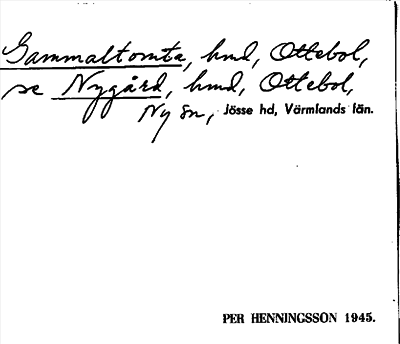 Gammaltomta, hmd, Ottebol,
se Nygård, hmd, Ottebol,
Ny sn, Jösse hd, Värmlands län.
PER HENNINGSSON 1945.